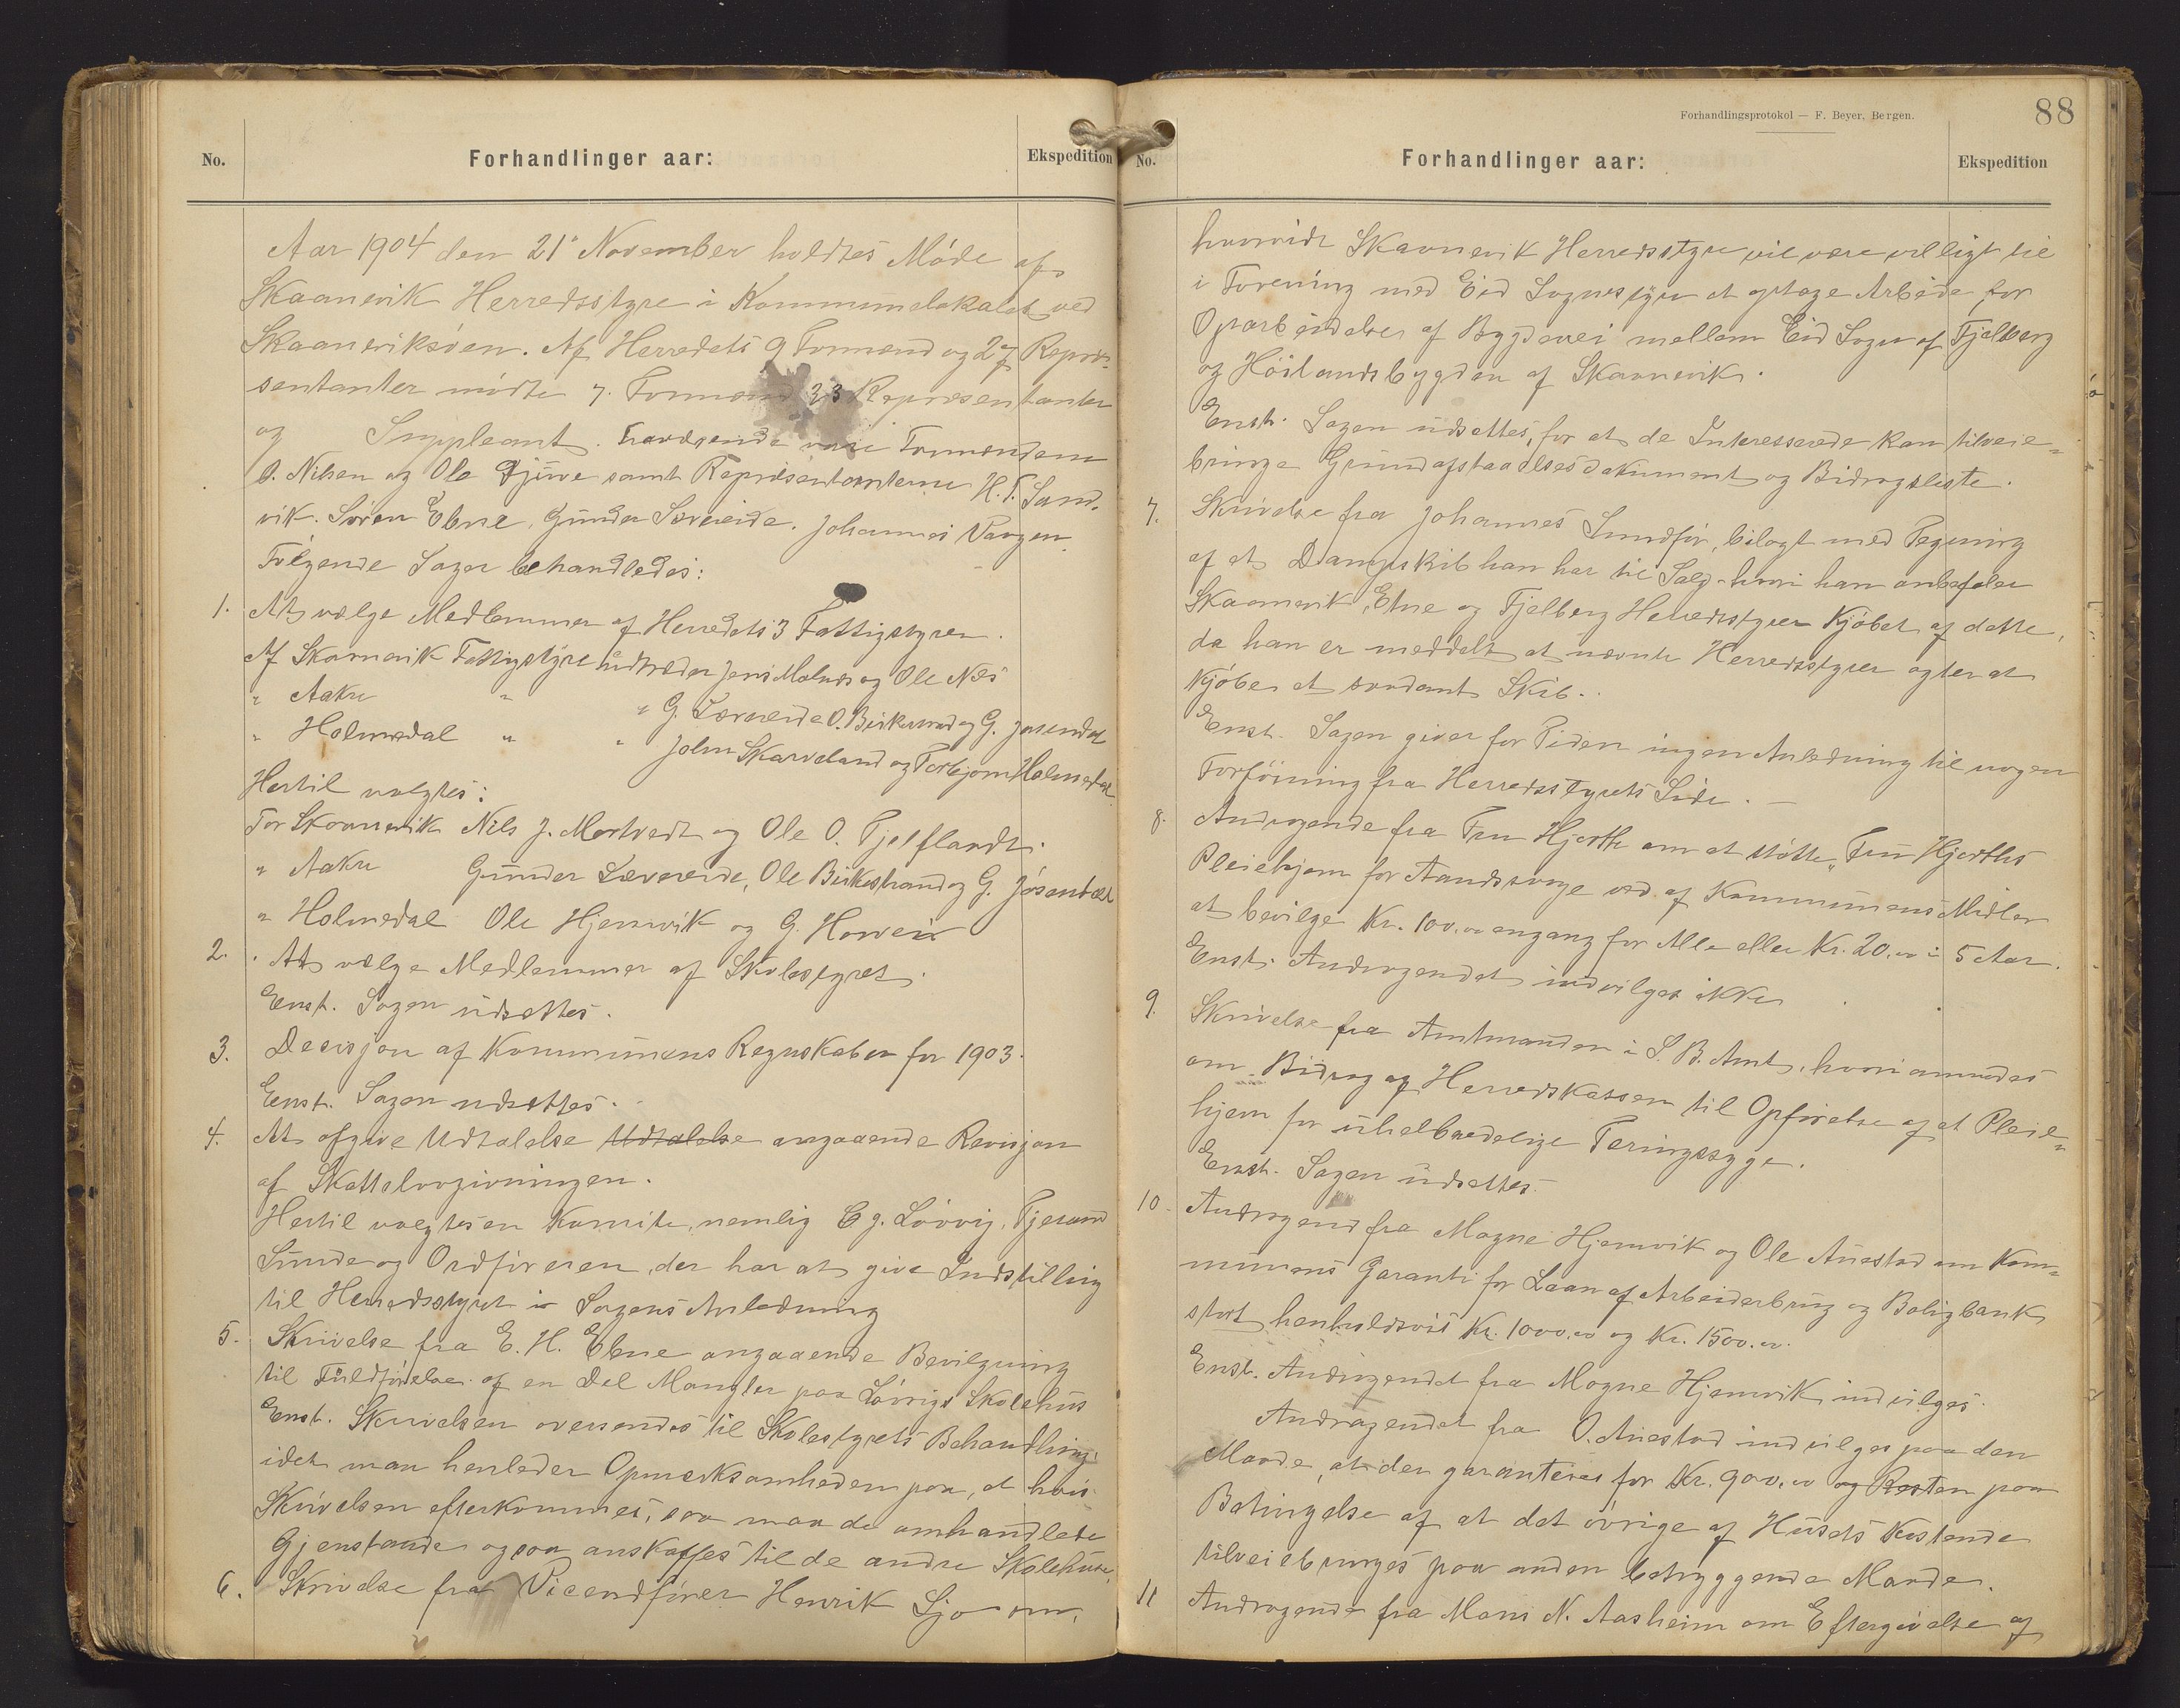 No. Forhandlinger aar: Ekspedition
Aar 1904 den 21' November holdtes Möde af
Skaanevik Herredsstyre i Kommunelokalet ved
Skaaneviksöen. Af Herredets 9 Formænd og 27 Repræ-
sentanter mödte 7. Formænd 23 Repræsentanter
og Suppleant. Fraværende vare Formændene
O. Nilsen og Ole Tjüve samt Repræsentanterne H. T. Sand-
vik. Sören Ebne, Gunder Særeide. Johannes Vaagen.
Fölgende Sager behandledes:
1. At vælge Medlemmer af Herredets 3 Fattigstyrer.
Af Skaanevik Fattigstyre üdtræder Jens Molnes og Ole Næs
" Aakre " " G. Særeide O. Birkestrand og G. Jösendal
" Holmedal " " John Skarveland og Torbjörn Holmedal
Hertil valgtes:
For Skaanevik Nils J. Mortvedt og Ole O. Tjelflaadt.
" Aakre Günder Særeeide, Ole Birkestrand og G. Jösendal
" Holmedal Ole Hjemvik og G. Horveix
2. At vælge Medlemmer af Skolestyret.
Enst. Sagen üdsættes.
3. Decisjon af Kommunens Regnskaber for 1903.
Enst. Sagen udsættes.
4. At afgive Udtalelse Udtalelse angaaende Revisjon
af Skattelovgivningen.
Hertil valgtes en Komite, nemlig C. G. Lövvig, Tjeran
Sunde og Ordföreren, der har at give Indstilling
til Herredsstyret i Sagens Anledning
5. Skrivelse fra E. H. Ebne angaaende Bevilgning
til Füldförelse af en Del Mangler paa Lövvigs Skolehüs
Enst. Skrivelsen oversendes til Skolestyrets Behandling,
idet man henleder Opmærksomheden paa, at hvis
Skrivelsen efterkommes, saa maa de omhandlede
Gjenstande ogsaa anskaffes til de andre Skolehuse.
6. Skrivelse fra Viceordförer Henrik Sjo om,
Forhandlingsprotokol — F. Beyer, Bergen.
88
No. Forhandlinger aar: Ekspedition
hvorvidt Skaanevik Herredsstyre vil være villigt til
i Forening med Eid Sognestyre at optage Arbeide for
Oparbeidelse af Bygdevei mellem Eid Sogn af Fjelberg
og Höilandsbygden af Skaanevik.
Enst. Sagen üdsættes, for at de Interesserede kan tilveie-
bringe Grundafstaaelsesdokument og Bidragsliste.
7. Skrivelse fra Johannes Sundför, bilagt med Tegning
af et Dampskib han har til Salg, hvori han anbefaler
Skaanevik, Etne og Fjelberg Herredsstyrer Kjöbet af dette,
da han er meddelt at nævnte Herredsstyrer agter at
Kjöbe et saadant Skib.
Enst. Sagen giver for Tiden ingen Anledning til nogen
Forföining fra Herredsstyrets Side. —
8. Andragende fra Fru Hjorth om at stötte „Fru Hjorths
Pleiehjem for Aandssvage ved af Kommünens Midler
at bevilge Kr. 100.00 engang for Alle eller Kr. 20.00 i 5 Aar.
Enst. Andragendet indvilges ikke
9. Skrivelse fra Amtmanden i S. B. Amt, hvori anmodes
om Bidrag af Herredskassen til Opförelse af et Pleie-
hjem for uhelbredelige Tæringssyge.
Enst. Sagen üdsættes.
10. Andragend fra Magne Hjemvik og Ole Anestad om Kom-
munens Garanti for Laan af Arbeiderbrug og Boligbank
stort henholdsvis Kr. 1000.00 og Kr. 1500.00.
Enst. Andragendet fra Magne Hjemvik indvilges.
Andragendet fra O. Anestad indvilges paa den
Maade, at der garanteres for Kr. 900.00 og Resten paa
Betingelse af at det övrige af Husets Kostende
tilveiebringes paa anden betryggende Maade.
11 Andragende fra Mons N. Aasheim om Eftergivelse af